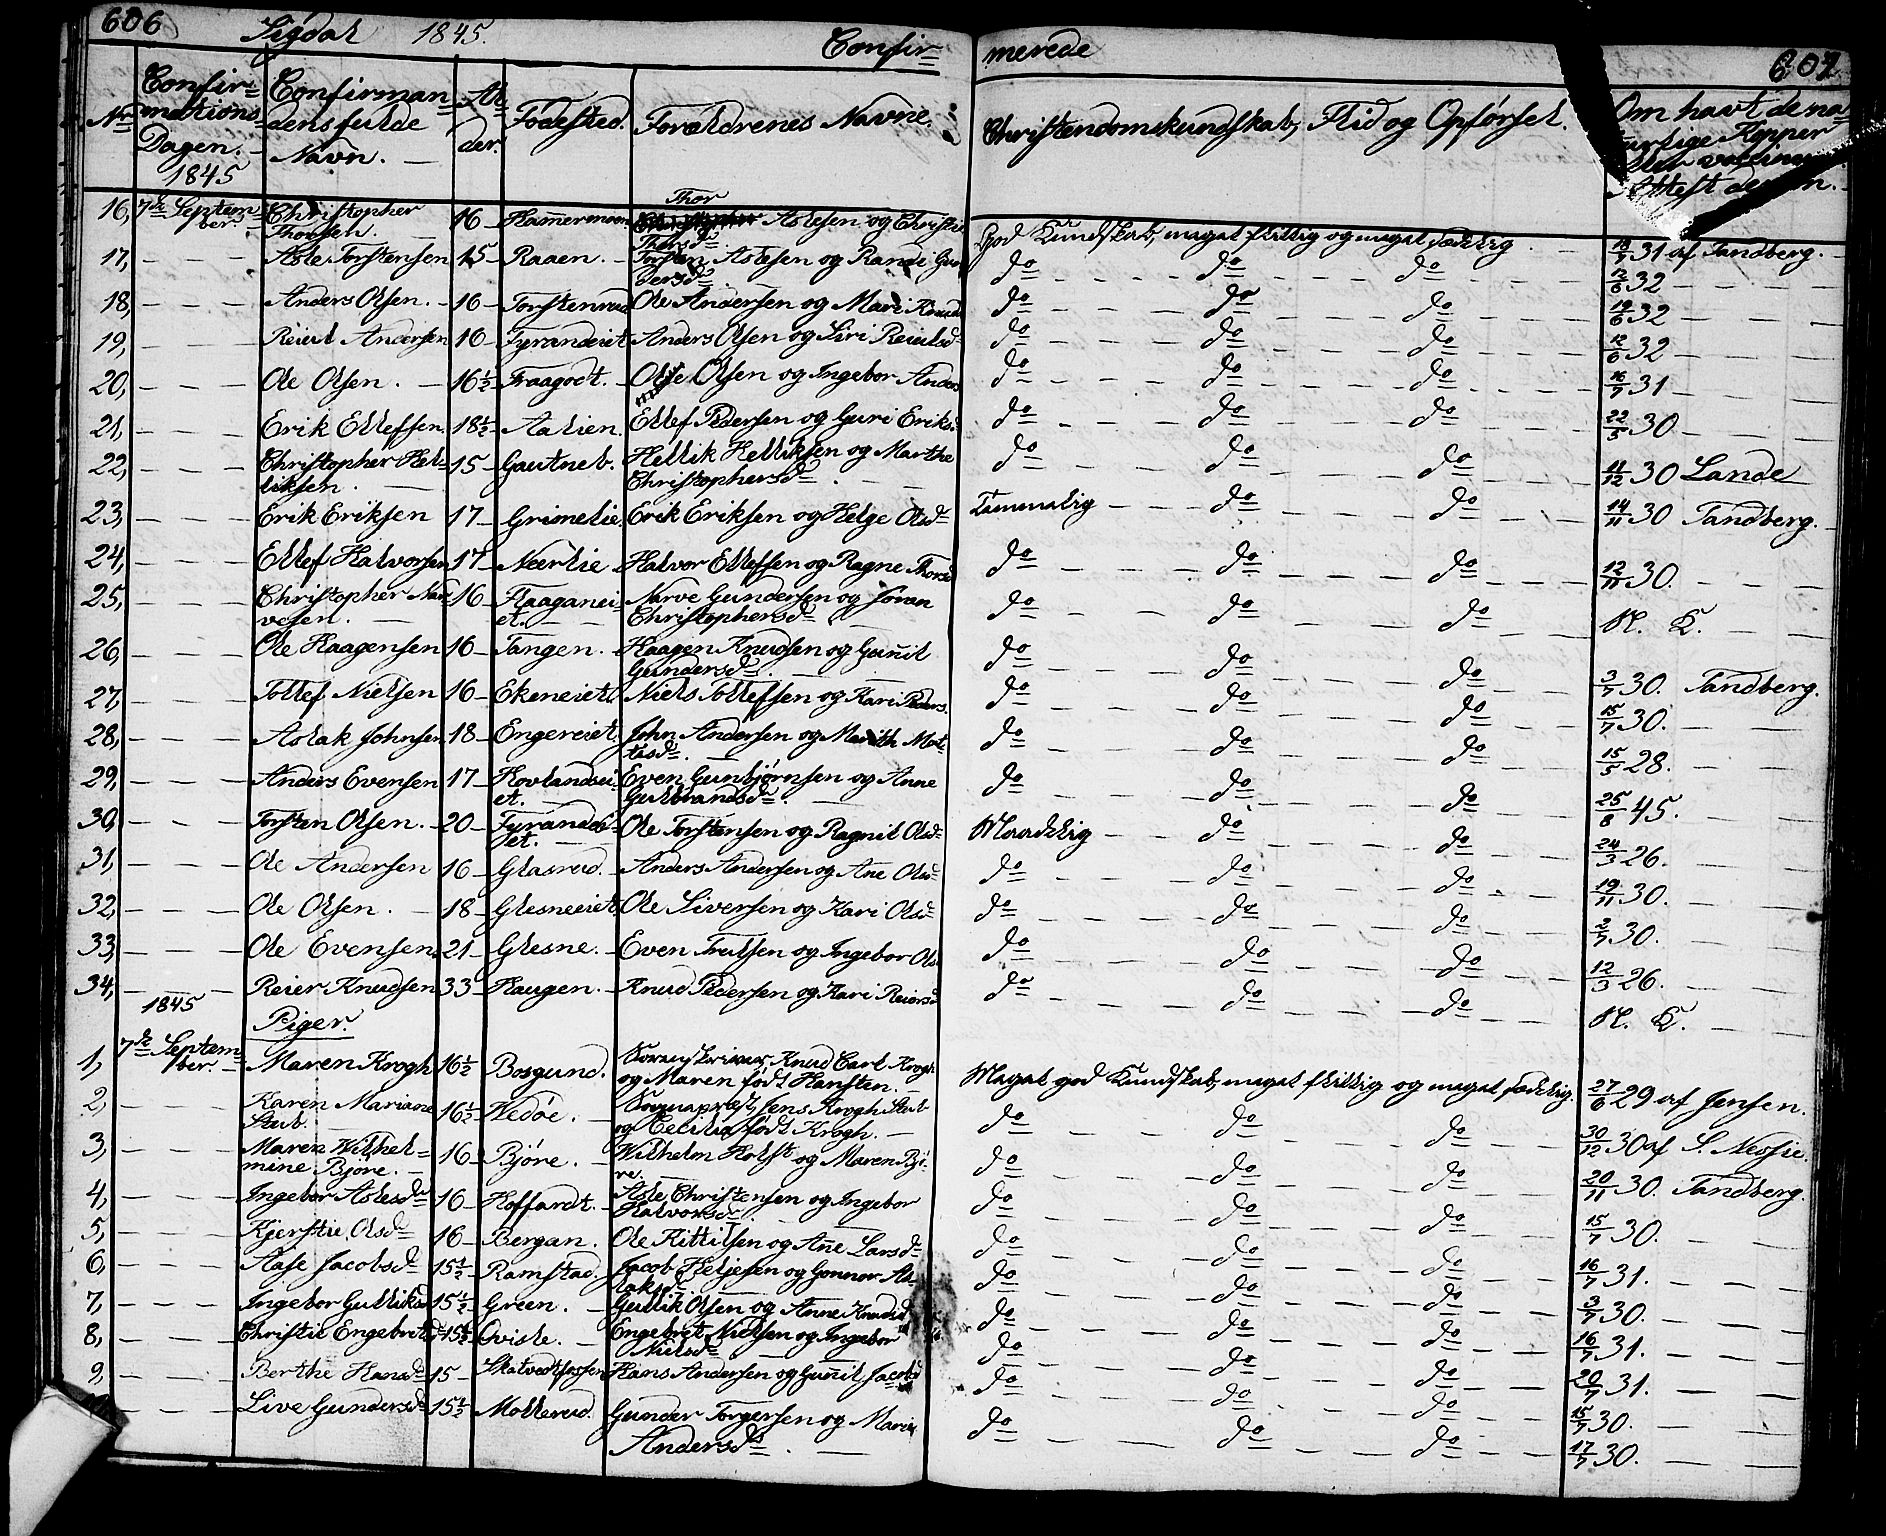 606 Sigdal 1845. Confir=
merede 607
No Confir=mations Dagen. 1845 Confirmandens fulde Navn. Alder. Fødested. Forældrenes Navne.
Christendomskundskab, Flid og Opførsel. Om havt de naturlige Kopper
16, 7de September. Christopher Thorsen. 16 Thor Aslesen og Thorsd. God Kundskab, meget flittig og meget sædelig 31 af Tandberg.
17, — — — Asle Torstensen 15 Raaen. Torsten Aslesen og Rande do do do 32
18, — — — Anders Olsen. 16 Torstenrud Ole Andersen og Mari do do do 19/6 32
19, — — — Anders­en 16 Tyrandeiet Anders Olsen og Siri do do do 12/6 32
20, — — — Ole Olsen. 16½ Fraagodt. Olsen og Ingebor Anders do do do 16/7 31
21, — — — Erik Ellefsen 18½ Aalien. Ellef Pedersen og Guri Eriksd do do do 22/5 30
22, — — — Christopher Helliksen. 15 Gautneb. Hellik Helliksen og Marthe Christophersd. do do do 11/12 30 Lande
23, — — — Erik Eriksen 17 Grimelie Erik Eriksen og Helge Olsd Tammelig do do 14/11 30 Tandberg.
24, — — — Ellef Halvorsen 17 Nærlie Halvor Ellefsen og Ragne Thorsd do do do 12/11 30.
25, — — — Christopher Narvesen. 16 Flaaganeiet. Narve Gundersen og Jøran Christophersd do do do N. K.
26, — — — Ole Haagensen 16 Tangen. Haagen Knudsen og Gunnil Gundersd. do do do 3/7 30. Tandberg.
27, — — — Tollef Nielsen 16 Ekeneiet. Niels Tollefsen og Kari Peders. do do do 15/7 30.
28, — — — Aslak Johnsen 18 Engereiet. John Andersen og Marith do do do 15/5 28.
29, — — — Anders Evensen 17 Hovlandseiet. Even Gunbjørnsen og Anne Gulbrandsd. do do do 25/8 45.
30, — — — Torsten Olsen. 20 Ole Torstensen og Ragnil Olsd Maadelig do do 24/3 26.
31, — — — Ole Andersen 16 Glasrud. Anders Andersen og Ane Olsd do do do 19/11 30.
32, — — — Ole Olsen. 18 Glesneeiet Ole Siversen og Kari Olsd do do do 2/7 30.
33, — — — Ole Evensen 21 Glesne. Even Trulsen og Ingebor Ols do do do 12/3 26.
34, — — — Reier Knudsen 33 Haugen. Knud Pedersen og Kari Reiersd do do do N. K.
1845 Piger.
1, 7de September Maren Krogh 16½ Bosgund. Sorenskriver Knud Carl Krogh og Maren født Hansten. Meget god Kundskab, meget flittig og meget sædelig. 27/6 29 af Jensen.
2, — — — Karen Mariane Stub. 16½ Vedøe. Sogneprest Jens Krogh Stub og Cecilia født Krogh. do do do 30/12 30 af
3, — — — Maren Wilhelmine Bjøre. 16 Bjøre. Wilhelm Holst og Maren Bjøre do do do 20/11 30. Tandberg.
4, — — — Ingebor Aslesd 16 Hoffardt. Asle Christensen og Ingebor Halvorsd. do do do 15/7 30.
5, — — — Kjerstie Olsd 16 Bergan. Ole Kittilsen og Ane Larsd do do do 16/7 31.
6, — — — Aase Jacobsd 15½ Ramstad. Jacob Helgesen og Gonnor do do do 3/7 30.
7, — — — Ingebor Gulliksd 15½ Green. Gullik Olsen og Anne Knudsd do do do 16/7 31.
8, — — — Christie Engebretsd 15½ Qvisle. Engebret Nielsen og Ingebor Nielsd do do do 20/7 31.
9, — — — Berthe Hansd 15 Skatvedtfossen Hans Andersen og Gunnil Jacobsd do do do 15/7 30.
— — — Live Gundersd 15½ Mollerud. Gunder Torgersen og Marie Andersd. do do do 17/7 30.